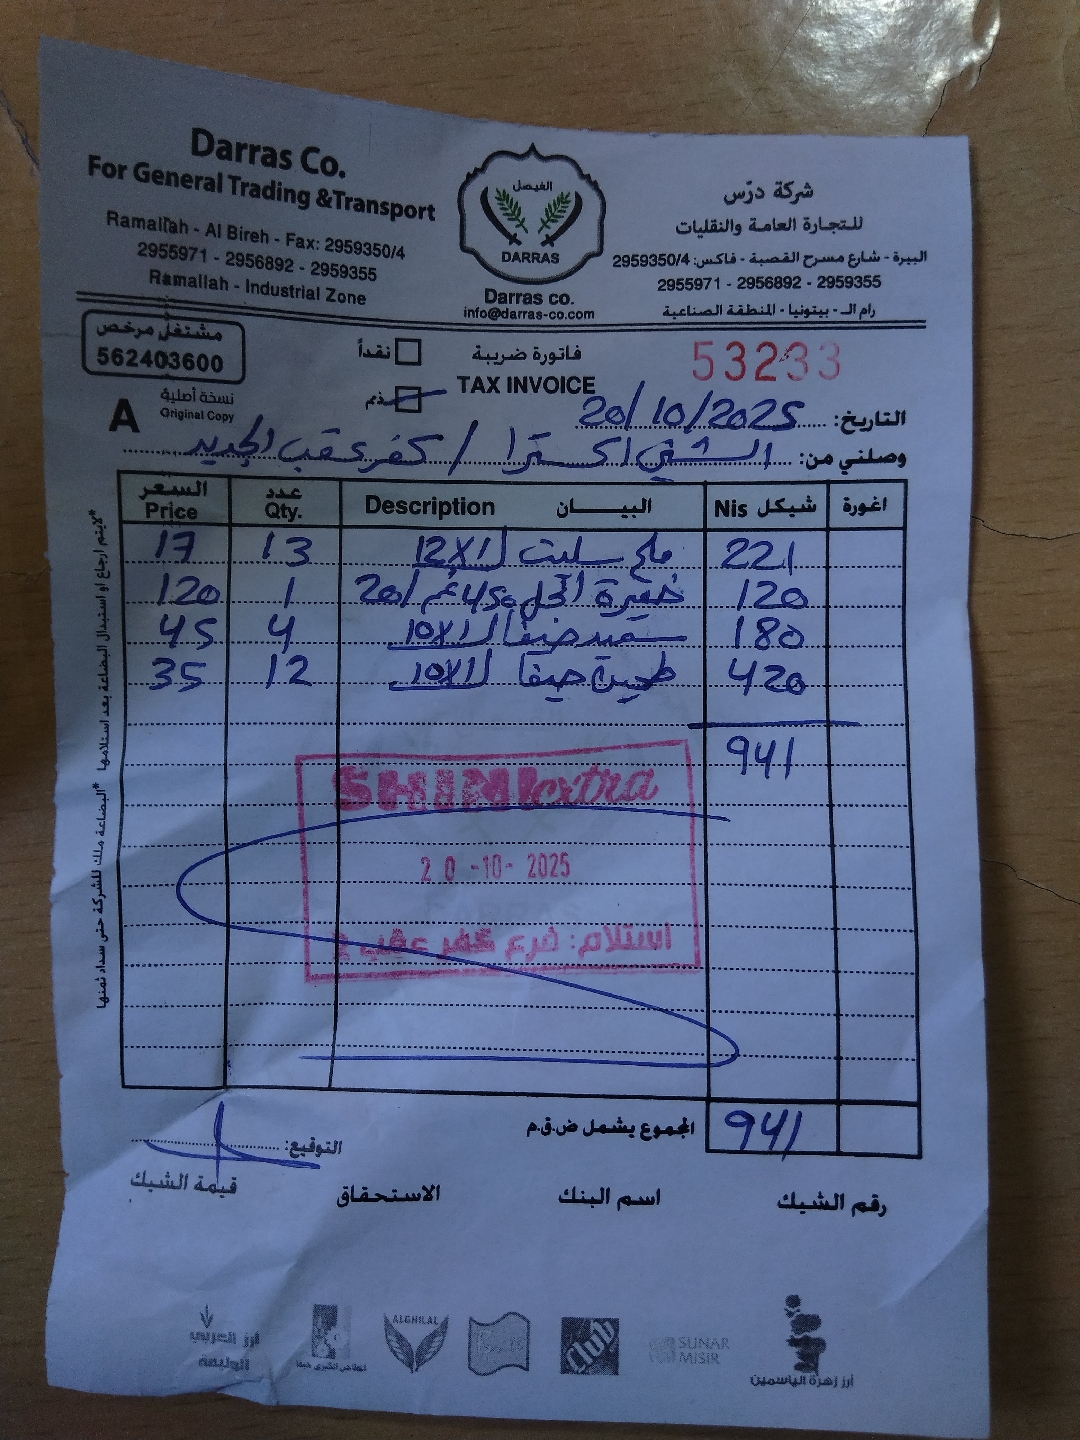 Darras Co.
For General Trading &Transport
Ramallah - Al Bireh - Fax: 2959350/4
2955971 - 2956892 - 2959355
Ramallah - Industrial Zone
الفيصل
DARRAS
Darras co.
info@darras-co.com
شركة درّس
للتجارة العامة والنقليات
البيرة - شارع مسرح القصبة - فاكس: 2959350/4
2955971 - 2956892 - 2959355
رام الـ - بيتونيا - المنطقة الصناعية
مشتغل مرخص
562403600
نسخة أصلية
Original Copy
A
نقداً
ذمم
فاتورة ضريبة
TAX INVOICE
53233
التاريخ: 20/10/2025
وصلني من: الشني اكسترا / كفر عقب الجديد
اغورة شيكل Nis البيـــان Description عدد Qty. السعر Price
221 ملح سليت 12X1 ل 13 17
120 خميرة 450 غم /20 1 120
180 سميد حيفا 10X1 ل 4 45
420 طحين حيفا 10X1 ل 12 35
941
SHINI extra
20 -10- 2025
استلام: فرع كفر عقب 2
المجموع يشمل ض.ق.م 941
التوقيع:
رقم الشيك اسم البنك الاستحقاق قيمة الشيك
*لايتم ارجاع او استبدال البضاعة بعد استلامها *البضاعة ملك للشركة حتى سداد ثمنها
أرز العربي
الوليمة
ALGHILAL
Club
SUNAR
MISIR
أرز زهرة الياسمين